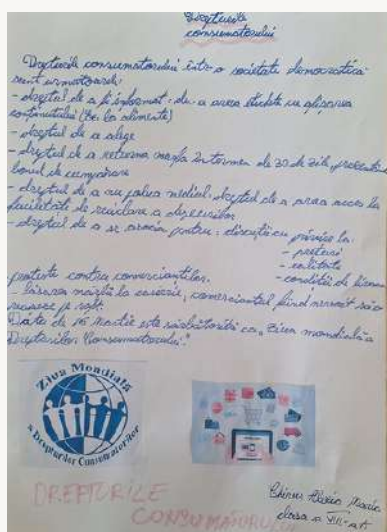 Drepturile
consumatorului
Drepturile consumatorului într-o societate democratică
sunt următoarele:
- dreptul de a fi informat: de a avea etichete cu afișarea
conținutului (Ex: la alimente)
- dreptul de a alege
- dreptul de a returna marfa în termen de 30 de zile, prezentând
bonul de cumpărare
- dreptul de a nu polua mediul, dreptul de a avea acces la
facilități de reciclare a deșeurilor
- dreptul de a se asocia pentru: discuții cu privire la:
- prețuri
- calitate
- condiții de
proteste contra comercianților.
- lăsarea mărfii la casierie, comerciantul fiind nevoit să o
așeze pe raft.
Data de 15 martie este sărbătorită ca „Ziua mondială a
Drepturilor Consumatorului."
Ziua Mondială
a Drepturilor Consumatorilor
DREPTURILE
CONSUMATORULUI
Maria
clasa a VIII-a